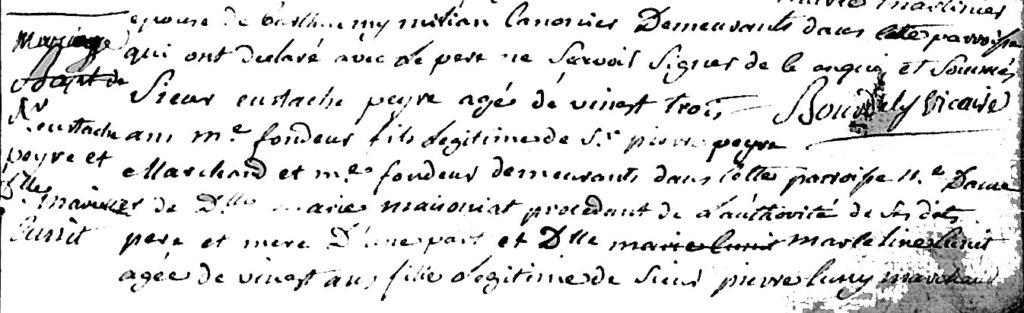 marie martinier
epouse de Barthelemy mirian Canonier Demeurants dans cette parroisse
qui ont declaré avec le pere ne Scavoir Signer de ce enquis et Sommés
Bourdely vicaire
Mariage
Sr
eustache
peyre et
Dlle
Lunit
Sieur eustache peyre agé de vingt trois
ans me fondeur fils legitime de Sr pierre peyre
Marchand et me fondeur demeurants dans cette parroisse N.e Dame
et de Dlle marie maisoniat procedant de l'authorité de ses dits
pere et mere D'une part et Dlle marie Lunit marceline Lunit
agée de vingt ans fille legitime de Sieur pierre Luny marchand